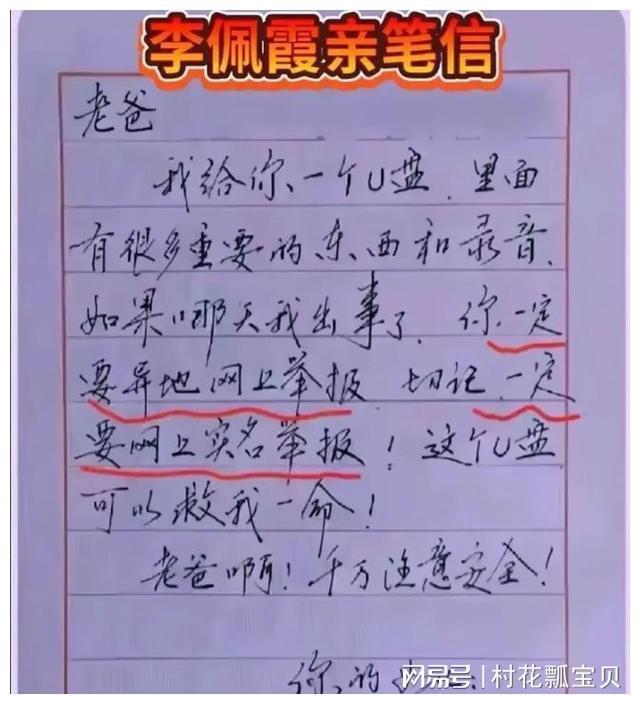 李佩霞亲笔信
老爸
我给你一个U盘、里面
有很多重要的东西和录音、
如果哪天我出事了、你一定
要异地网上举报、切记、一定
要网上实名举报！这个U盘
可以救我一命！
老爸啊！千万注意安全！
你的
网易号 | 村花瓢宝贝